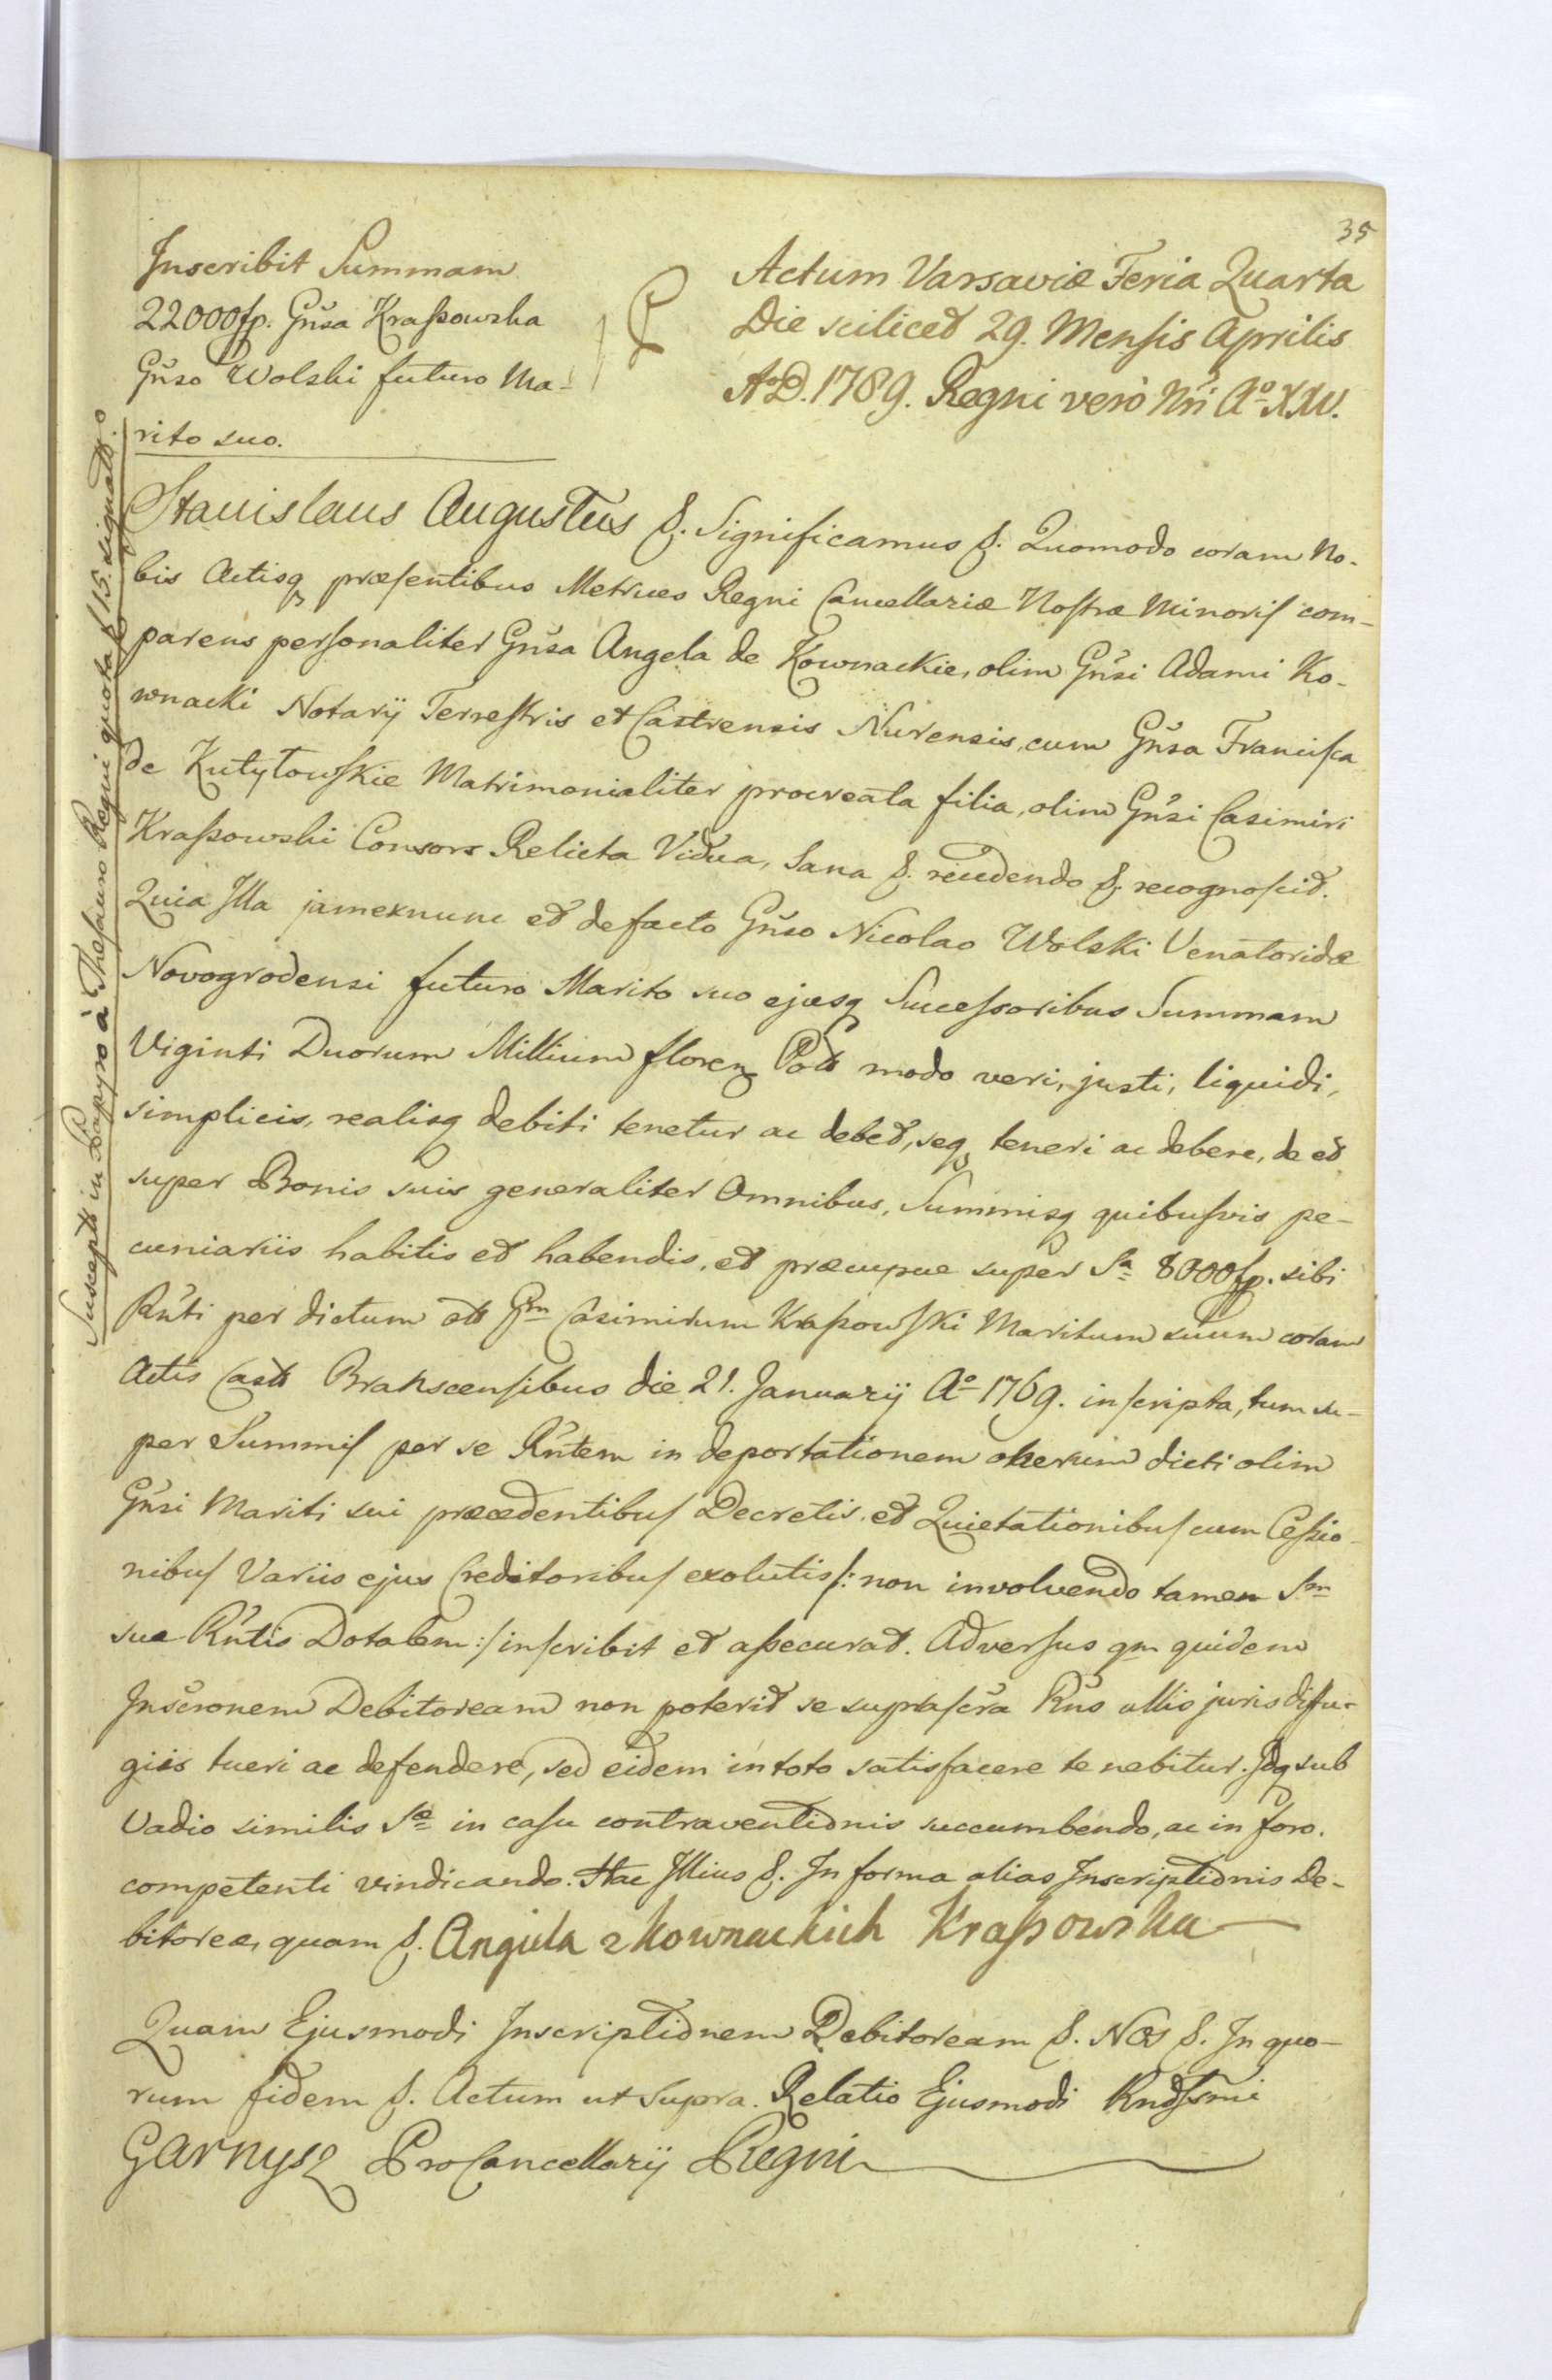 35
Inscribit Summam
22000fp. Gńsa Kraßowska
Gńso Wolski futuro Ma-
rito suo.
Actum Varsaviæ Feria Quarta
Die scilicet 29. Mensis Aprilis
A°D. 1789. Regni verò Nri A° XXV.
Stanislaus Augustus &. Significamus &. Quomodo coram No-
bis Actisq præsentibus Metrices Regni Cancellariæ Nostræ Minoris com-
parens personaliter Gńsa Angela de Kownackie, olim Gńsi Adami Ko-
wnacki Notarij Terrestris et Castrensis Nurensis, cum Gńsa Francisca
de Kutyłowskie Matrimonialiter procreata filia, olim Gńsi Casimiri
Kraßowski Consors Relicta Vidua, Sana &. recedendo &. recognoscit.
Quia Illa jamexnunc et defacto Gńso Nicolao Wolski Venatoridæ
Novogrodensi futuro Marito suo ejusq Successoribus Summam
Viginti Duorum Millium floren Polł modo veri, justi, liquidi,
simplicis, realisq debiti tenetur ac debet, seq teneri ac debere, de et
super Bonis suis generaliter Omnibus, Summisq quibusvis pe-
cuniariis habitis et habendis, et præcipue super Sa 8000fp. sibi
Rńti per dictum olł Gm Casimirum Kraßowski Maritum suum coram
Actis Castr Branscensibus die 21. Januarij A° 1769. inscripta, tum su-
per Summis per se Rńtem in deportationem onerum dicti olim
Gńsi Mariti sui præcedentibus Decretis, et Quietationibus cum Ceßio-
nibus Variis ejus Creditoribus exolutis /: non involvendo tamen Sm
suæ Rńtis Dotalem :/ inscribit et aßecurat. Adversus qm quidem
Inscronem Debitoream non poterit se suprascra Rńs ullis juris diffu-
giis tueri ac defendere, sed eidem in toto satisfacere tenebitur. Idq sub
Vadio similis Sæ in casu contraventionis succumbendo, ac in foro
competenti vindicando. Hac Illius &. In forma alias Inscriptionis De-
bitoreæ, quam &. Angiela z kownackich Kraßowska
Quam Ejusmodi Inscriptionem Debitoream &. Nos &. In quo-
rum fidem &. Actum ut supra. Relatio Ejusmodi Rndssmi
Garnysz ProCancellarij Regni
Suscepta in Papyro à Thesauro Regni quota f 15. signato